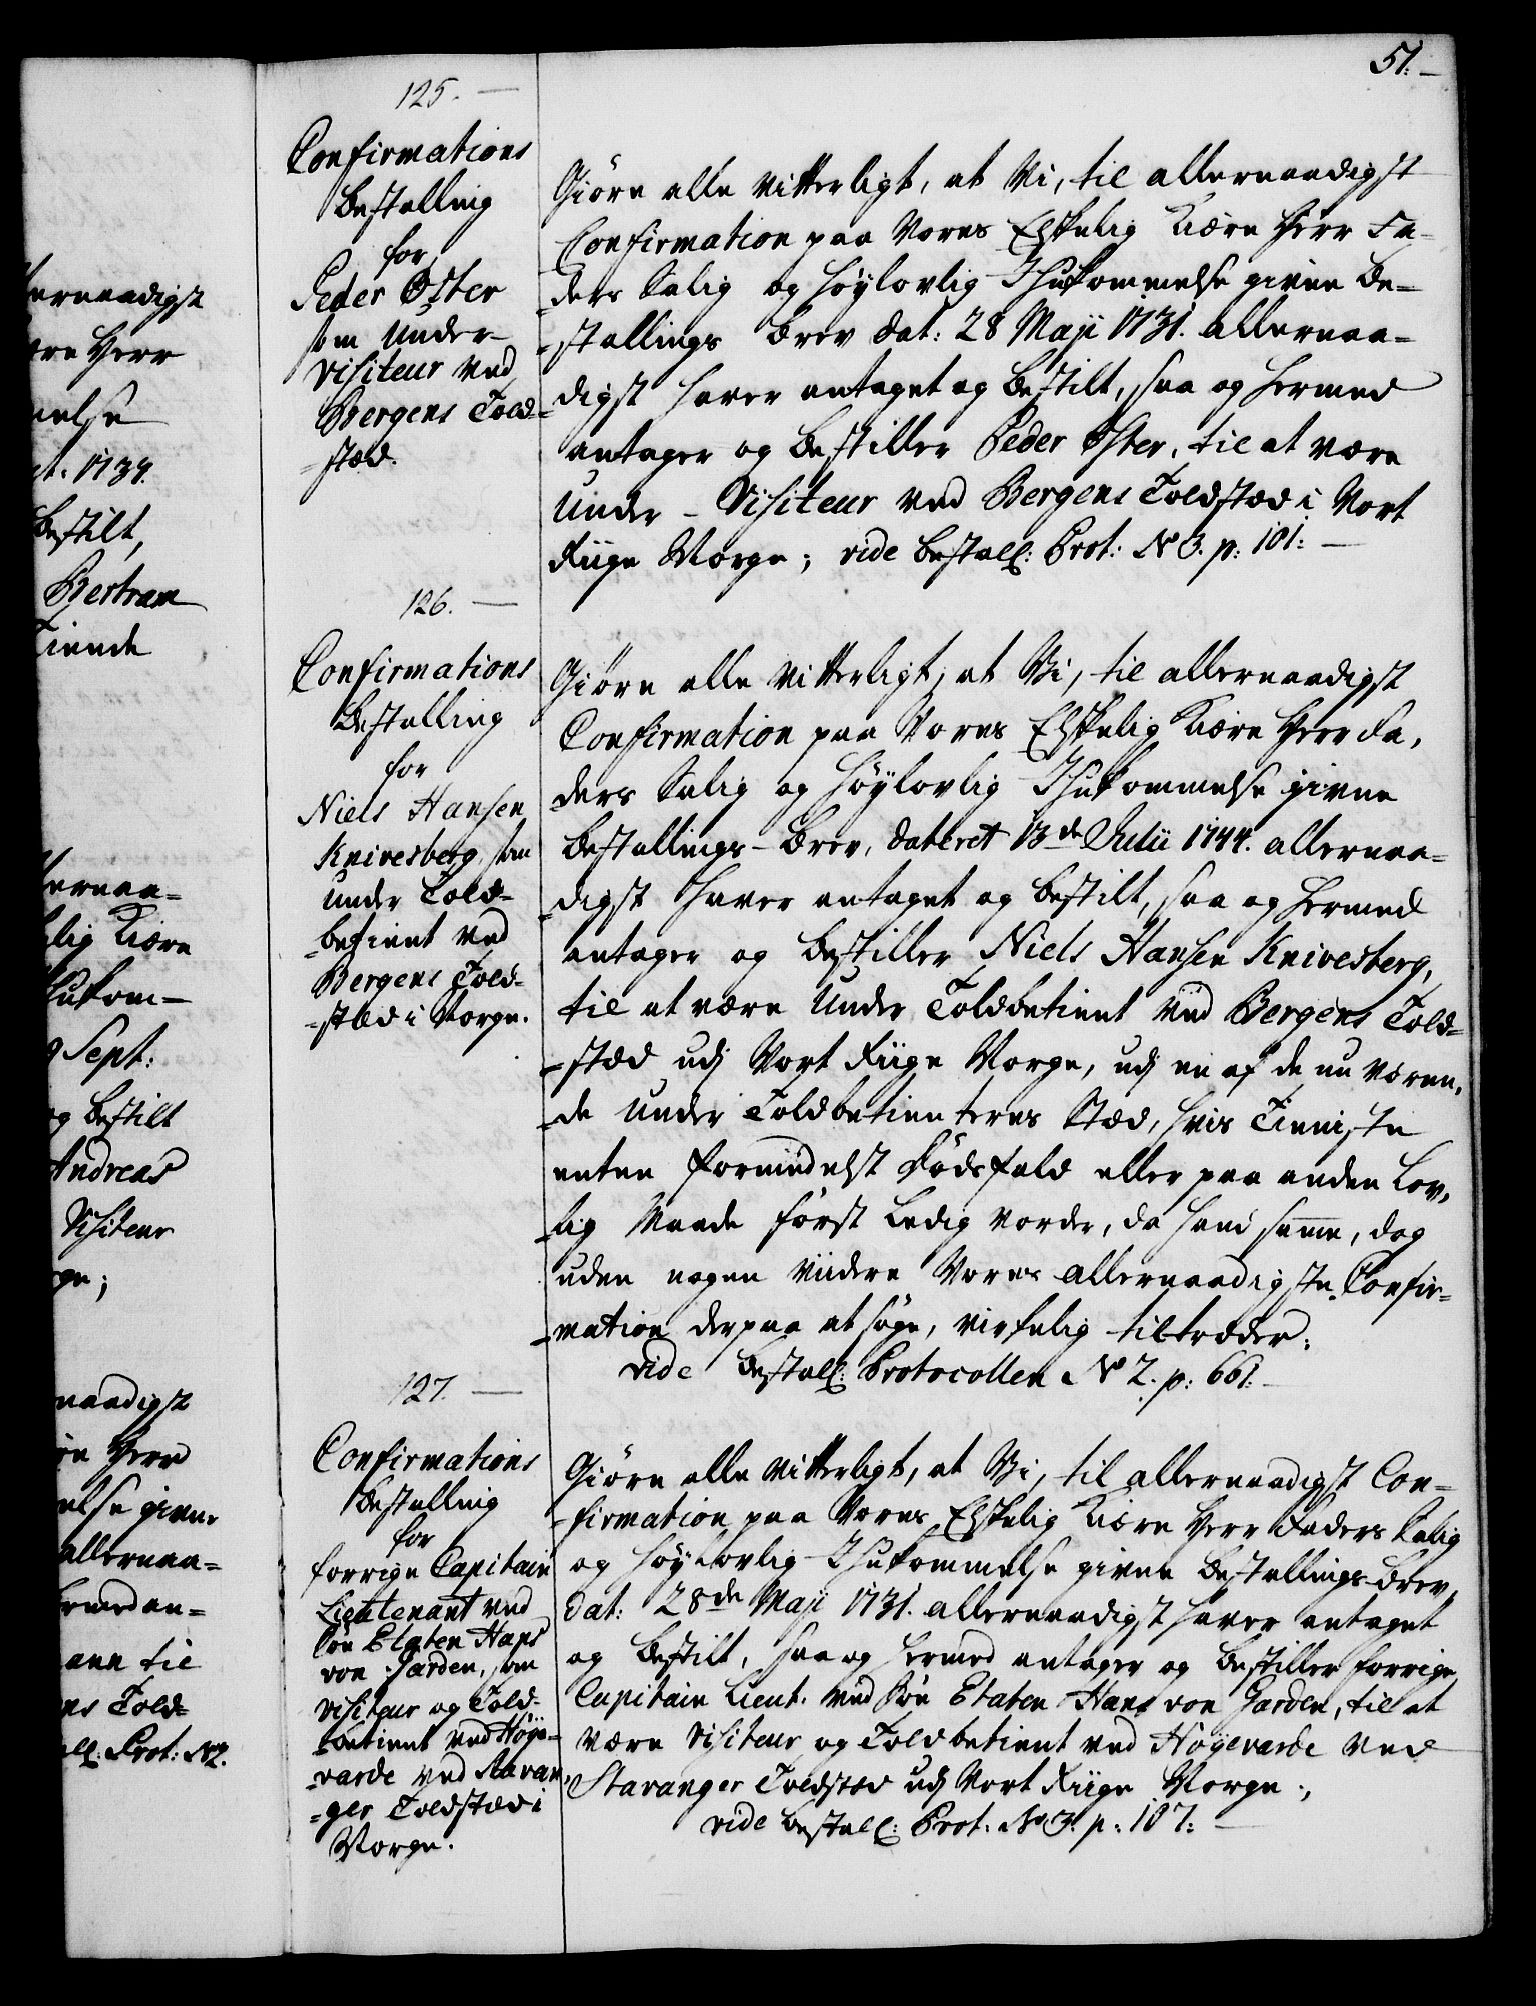 51.
125.
Confirmations
Bestalling
for
Peder Øster
som Under-
Visiteur ved
Bergens Told-
-stæd.
Giøre alle Vitterligt, at Vi, til allernaadigst
Confirmation paa Vores Elskelig Kiære Herr Fa-
-ders Salig og Høylovlig Ihukommelse givne Be-
-stallings Brev dat: 28 Maji 1731. allernaa-
-digst haver antaget og bestilt, saa og hermed
antager og bestiller Peder Øster, til at være
Under-Visiteur ved Bergens Toldstæd i Vort
Riige Norge; vide Bestall: Prot: No 3. p: 101:
126.
Confirmations
Bestalling
for
Niels Hansen
Knivesberg som
Under Told-
-betient ved
Bergens Told-
-stæd i Norge.
Giøre alle Vitterligt, at Vi, til allernaadigst
Confirmation paa Vores Elskelig Kiære Herr Fa-
-ders Salig og Høylovlig Ihukommelse givne
Bestallings-Brev, dateret 13de Julii 1744. allernaa-
-digst haver antaget og bestilt, saa og hermed
antager og bestiller Niels Hansen Knivesberg,
til at være Under Toldbetient ved Bergens Told-
-stæd udj Vort Riige Norge, udj en af de nu væren-
-de Under Toldbetienteres Stæd, hvis Tieniste
enten formedelst Dødsfald eller paa anden Lov-
-lig Maade først Ledig vorder, da hand samme, dog
uden nogen viidere Vores allernaadigste Confir-
-mation derpaa at søge, virkelig tiltræder.
vide Bestall: Protocollen No 2. p: 661:
127.
Confirmations
Bestalling
for
forrige Capitain
Lieutenant ved
Søe Etaten Hans
von Garden, som
Visiteur og Told-
-betient ved Høye-
-varde ved Stavan-
-ger Toldstæd i
Norge.
Giøre alle Vitterligt, at Vi, til allernaadigst Con-
-firmation paa Vores Elskelig Kiære Herr Faders Salig
og Høylovlig Ihukommelse givne Bestallings-Brev,
dat: 28de Maji 1731. allernaadigst haver antaget
og bestilt, saa og hermed antager og bestiller forrige
Capitain Lieut. ved Søe Etaten Hans von Garden, til at
være Visiteur og Toldbetient ved Høyevarde ved
Stavanger Toldstæd udj Vort Riige Norge;
vide Bestall: Prot. No 3. p: 107: